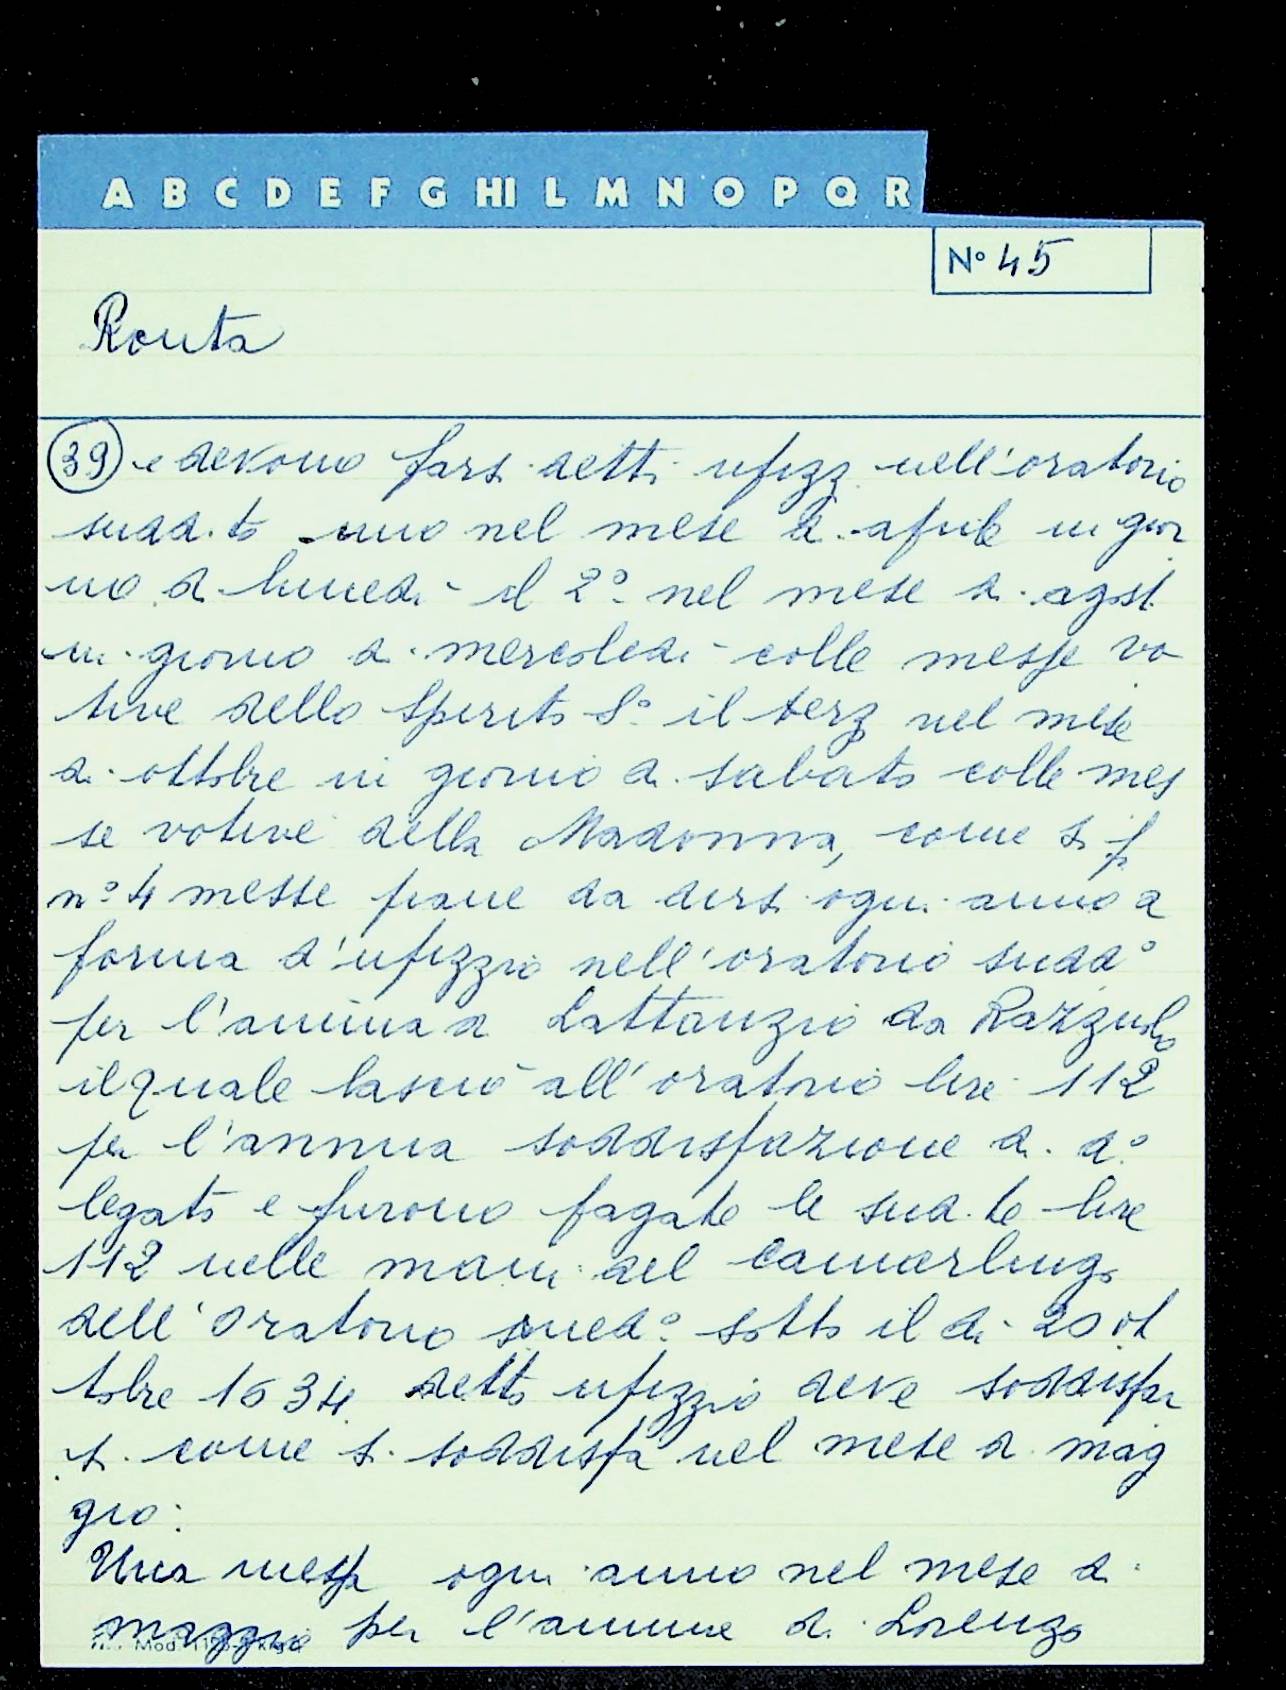 A B C D E F G HI L M N O P Q R
N° 45
Ronta
39 e devono farsi detti ufizz nell'oratorio
sudd.to uno nel mese di aprile in gior
no di lunedi - il 2° nel mese di agost.
in giorno di mercoledi - colle messe vo
tive dello Spirito S° il terz nel mese
di ottobre in giorno di sabato colle mes
se votive della Madonna, come si f
n° 4 messe piane da dirsi ogni anno a
forma d'ufizzio nell'oratorio sudd°
per l'anima di Lattanzio da Razzuolo
il quale lasciò all'oratorio lire 112
per l'annua soddisfazione di d°
legato e furono pagate le sud.te lire
112 nelle mani del Camerlingo
dell'Oratorio sued° sotto il di 20 ot
tobre 1634 detto ufizzio deve soddisfar
si come si soddisfa nel mese di mag
gio:
Una messa ogni anno nel mese di
maggio per l'anime di Lorenzo